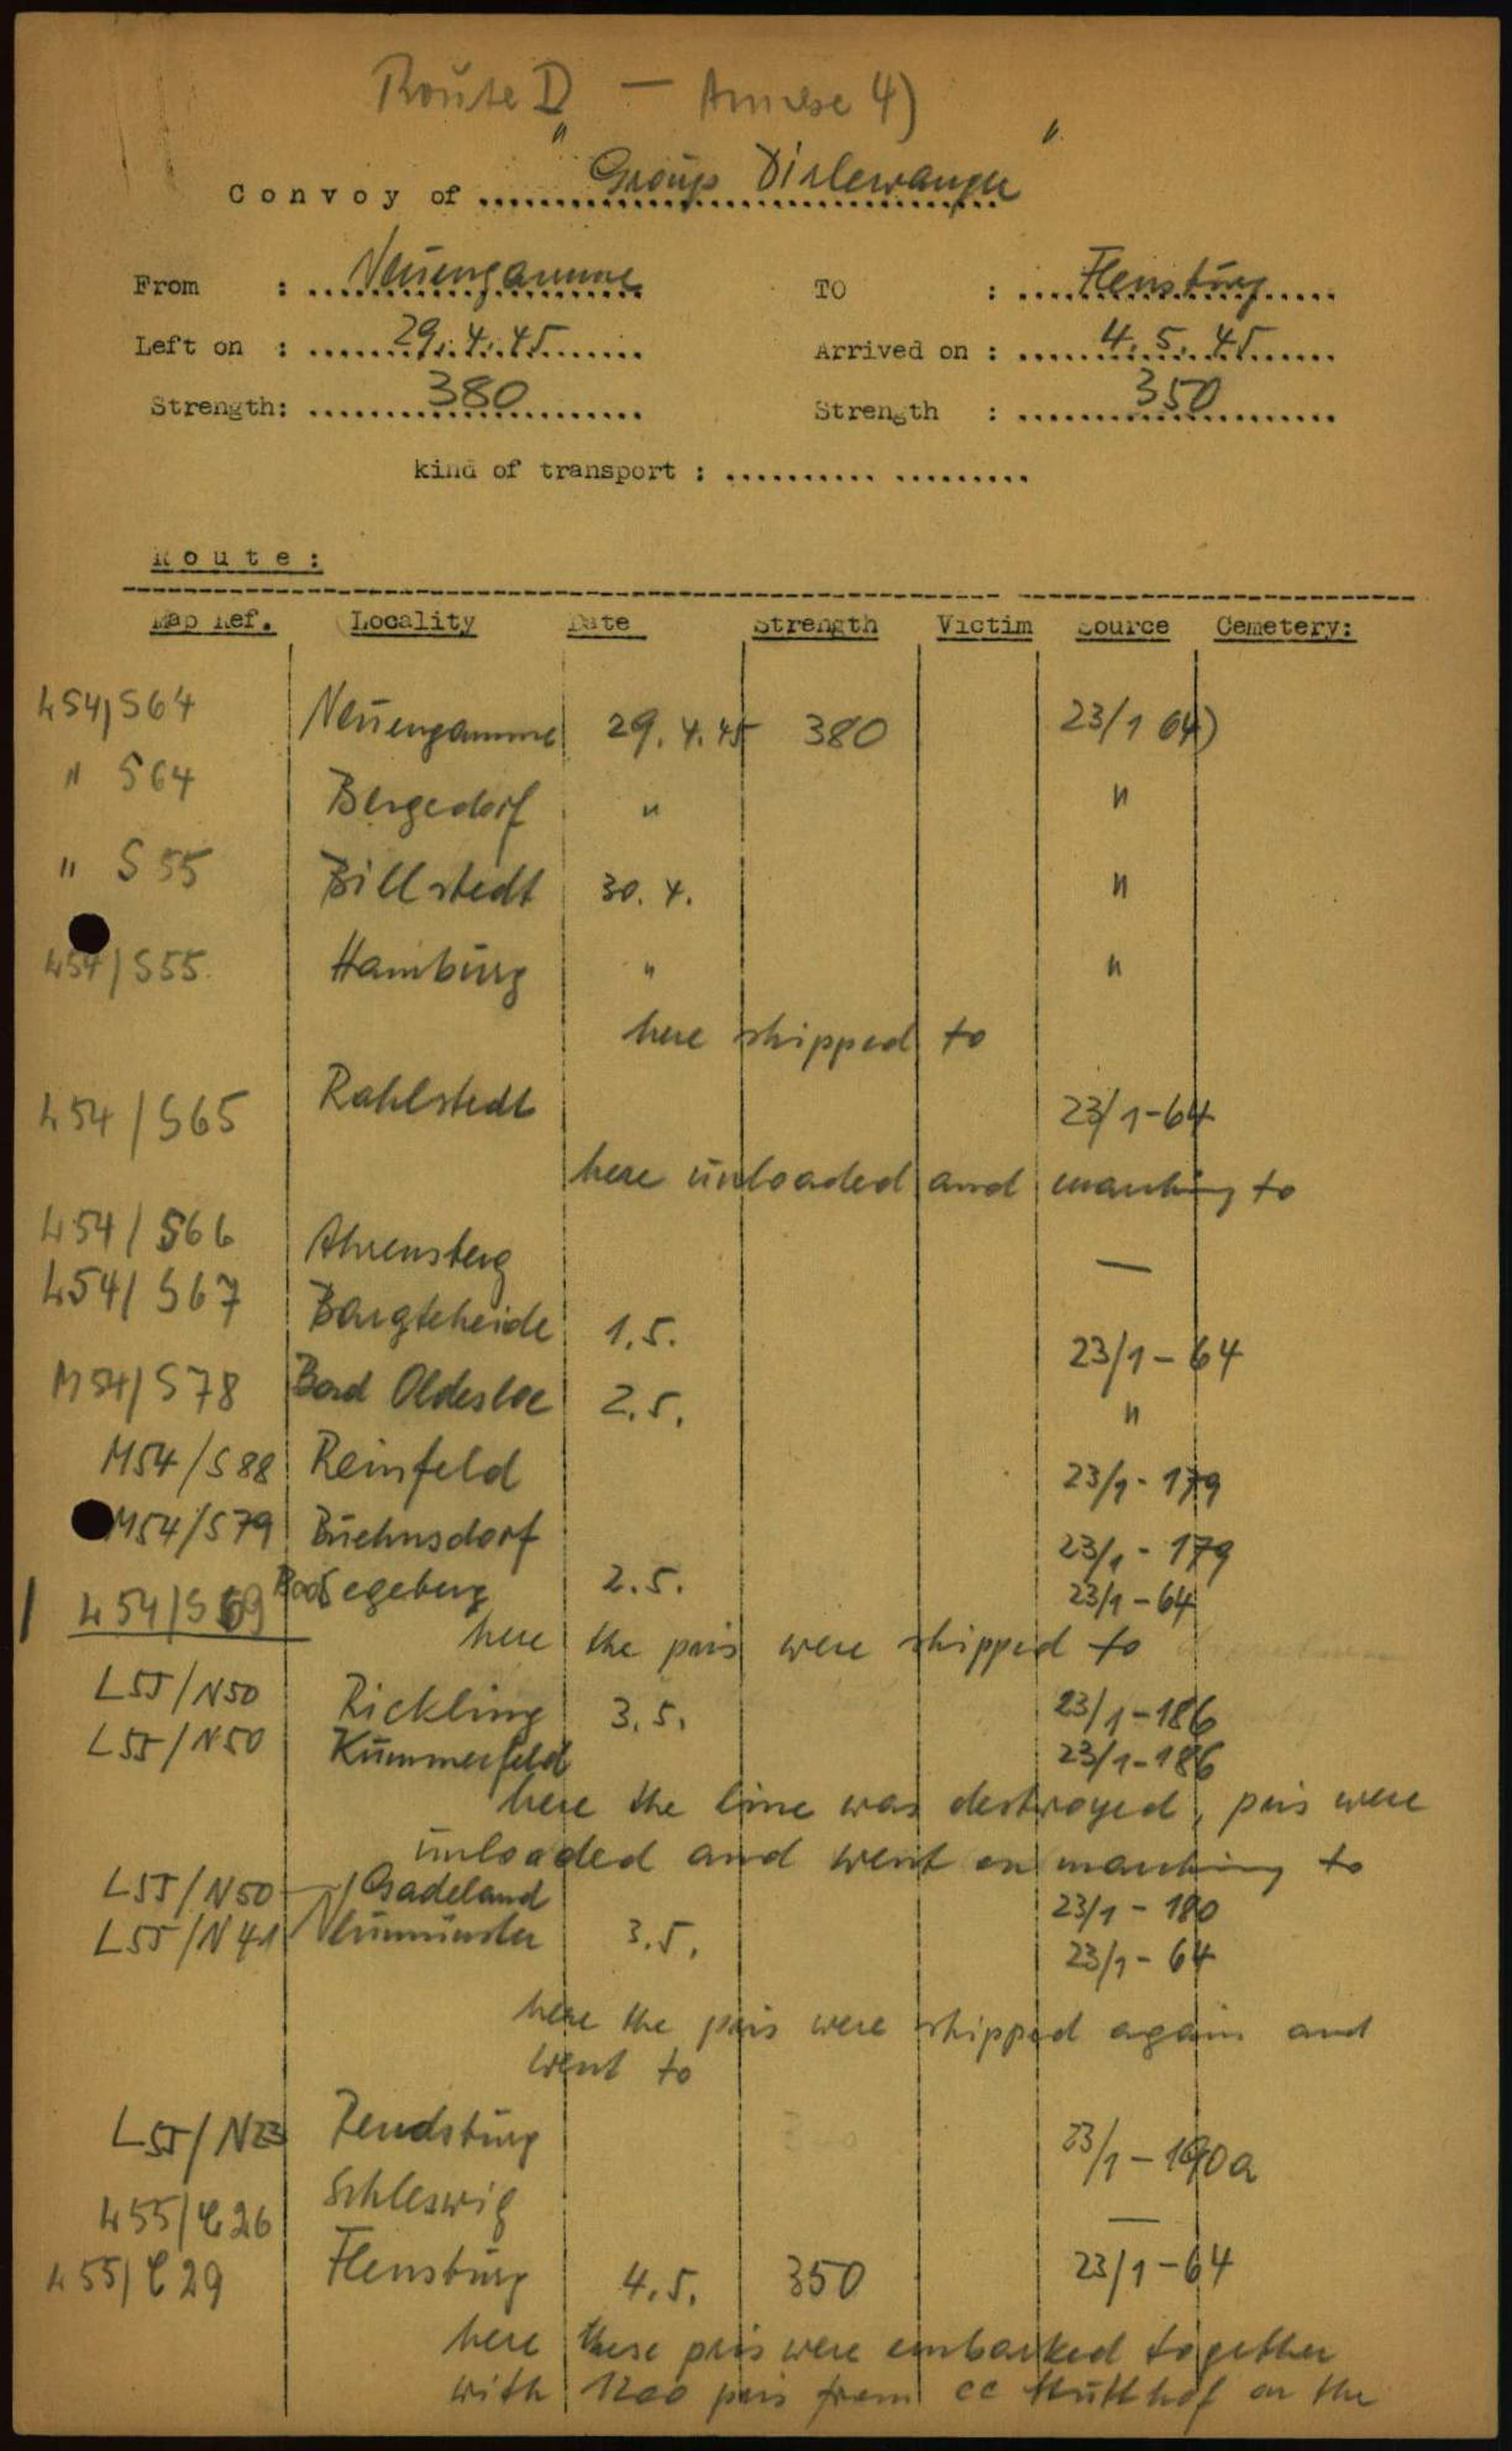 Route D — Annexe 4)
Convoy of ..... "Group Dirlewanger" .....
From : ..... Neuengamme ..... TO : ..... Flensburg .....
Left on : ..... 29.4.45 ..... Arrived on : ..... 4.5.45 .....
Strength: ..... 380 ..... Strength : ..... 350 .....
kind of transport : .......... .........
Route:
Map Ref. Locality Date Strength Victim Source Cemetery:
L54/S64 Neuengamme 29.4.45 380 23/1 64)
" S64 Bergedorf " "
" S55 Billstedt 30.4. "
L54/S55. Hamburg " "
here shipped to
L54/S65 Rahlstedt 23/1-64
here unloaded and marching to
L54/S66 Ahrensberg —
L54/S67 Bargteheide 1.5. 23/1-64
M54/S78 Bad Oldesloe 2.5. "
M54/S88 Reinfeld 23/1-179
M54/S79 Buehnsdorf 23/1-179
L54/S69 Bad Segeberg 2.5. 23/1-64
here the pris were shipped to
L55/N50 Rickling 3.5. 23/1-186
L55/N50 Kummerfeld 23/1-186
here the line was destroyed, pris were
unloaded and went on marching to
L55/N50 Gadeland 23/1-180
L55/N41 Neumünster 3.5. 23/1-64
here the pris were shipped again and
went to
L55/N23 Rendsburg 23/1-190a
L55/C26 Schleswig —
L55/C29 Flensburg 4.5. 350 23/1-64
here these pris were embarked together
with 1200 pris from CC Stutthof on the